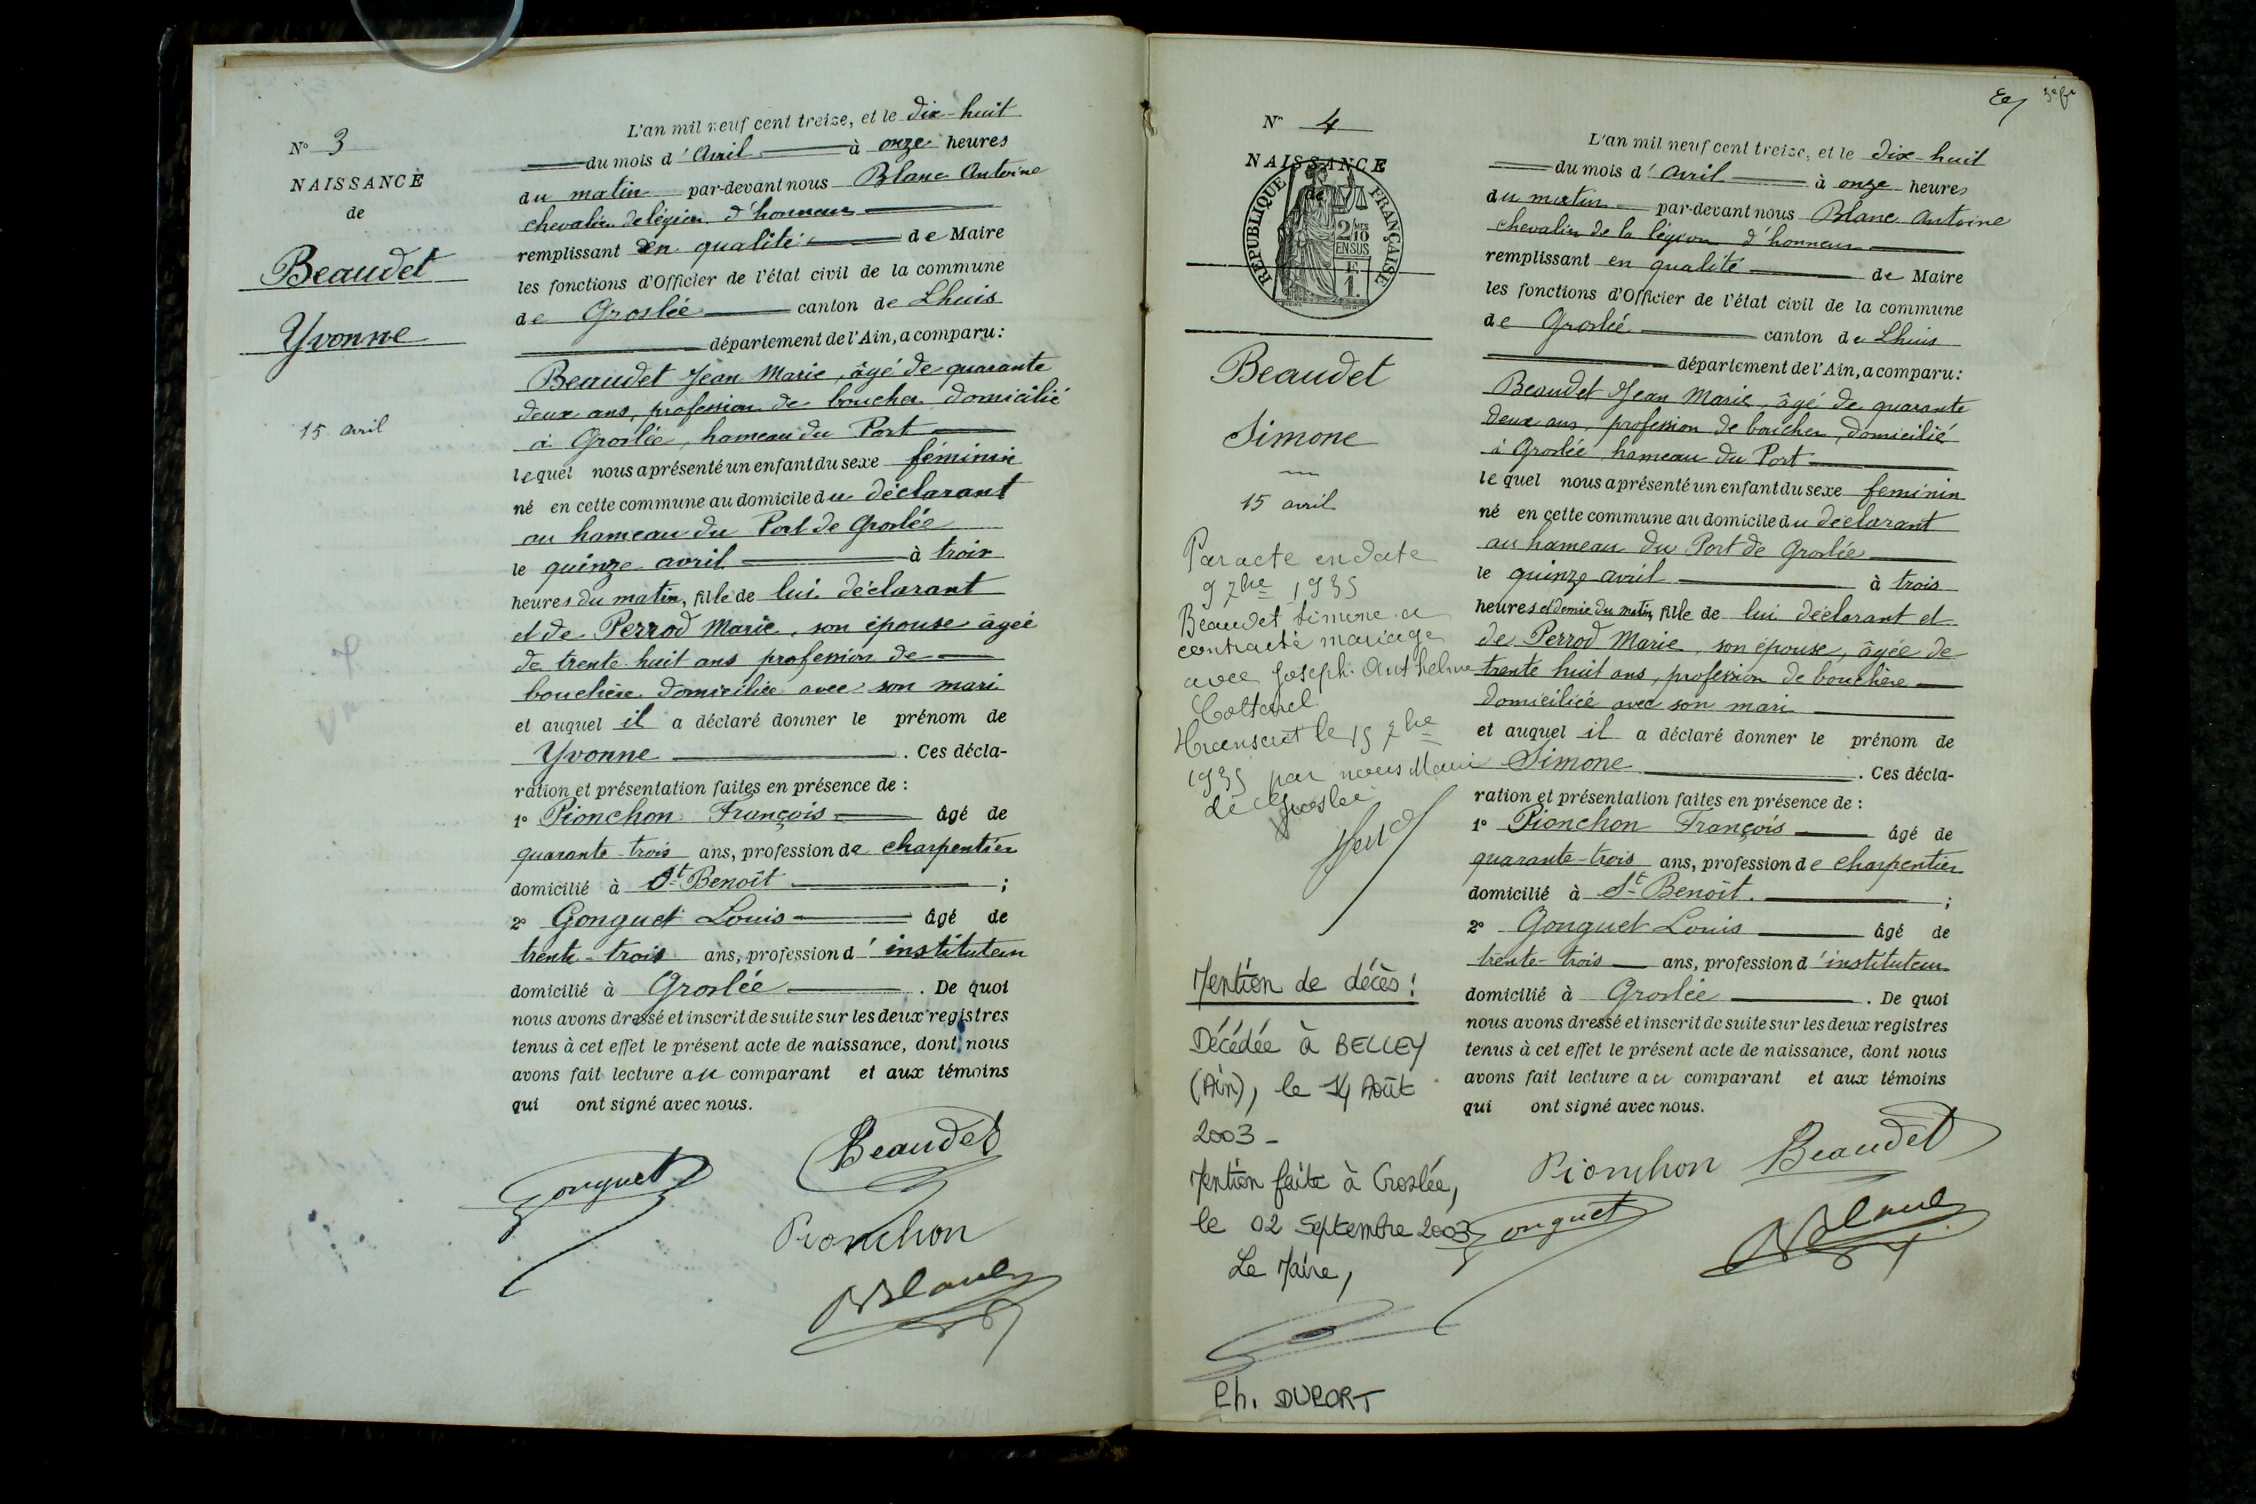 N° 3
NAISSANCE
de
Beaudet
Yvonne
15 avril
L'an mil neuf cent treize, et le dix-huit
du mois d'Avril à onze heures
du matin par-devant nous Blanc Antoine
chevalier de légion d'honneur
remplissant en qualité de Maire
les fonctions d'Officier de l'état civil de la commune
de Groslée canton de Lhuis
département de l'Ain, a comparu :
Beaudet Jean Marie, âgé de quarante
deux ans, profession de boucher domicilié
à Groslée, hameau du Port
lequel nous a présenté un enfant du sexe féminin
né en cette commune au domicile du déclarant
au hameau du Port de Groslée
le quinze avril à trois
heures du matin, fille de lui déclarant
et de Perrod Marie, son épouse âgée
de trente huit ans profession de
bouchère domiciliée avec son mari
et auquel il a déclaré donner le prénom de
Yvonne . Ces décla-
ration et présentation faites en présence de :
1° Pionchon François âgé de
quarante-trois ans, profession de charpentier
domicilié à St Benoît ;
2° Gonguet Louis âgé de
trente-trois ans, profession d'instituteur
domicilié à Groslée . De quoi
nous avons dressé et inscrit de suite sur les deux registres
tenus à cet effet le présent acte de naissance, dont nous
avons fait lecture au comparant et aux témoins
qui ont signé avec nous.
Beaudet
Gonguet
Pionchon
ABlanc
N° 4
NAISSANCE
de
RÉPUBLIQUE FRANÇAISE
2/10 MES
EN SUS
Beaudet
Simone
15 avril
Par acte en date
9 7bre 1935
Beaudet Simone a
contracté mariage
avec Joseph Anthelme
Transcrit le 15 7bre
1935 par nous Maire
de Groslée
Mention de décès :
Décédée à BELLEY
(Ain), le 14 Août
2003 -
Mention faite à Groslée,
le 02 Septembre 2003
Le Maire,
Ph. DUPORT
L'an mil neuf cent treize, et le dix-huit
du mois d'avril à onze heures
du matin par-devant nous Blanc Antoine
chevalier de la légion d'honneur
remplissant en qualité de Maire
les fonctions d'Officier de l'état civil de la commune
de Groslée canton de Lhuis
département de l'Ain, a comparu :
Beaudet Jean Marie, âgé de quarante
deux ans, profession de boucher, domicilié
à Groslée hameau du Port
lequel nous a présenté un enfant du sexe feminin
né en cette commune au domicile du déclarant
au hameau du Port de Groslée
le quinze avril à trois
heures et demie du matin, fille de lui déclarant et
de Perrod Marie, son épouse, âgée de
trente huit ans, profession de bouchère
domiciliée avec son mari
et auquel il a déclaré donner le prénom de
Simone . Ces décla-
ration et présentation faites en présence de :
1° Pionchon François âgé de
quarante-trois ans, profession de charpentier
domicilié à St Benoît. ;
2° Gonguet Louis âgé de
trente-trois ans, profession d'instituteur
domicilié à Groslée . De quoi
nous avons dressé et inscrit de suite sur les deux registres
tenus à cet effet le présent acte de naissance, dont nous
avons fait lecture au comparant et aux témoins
qui ont signé avec nous.
Pionchon Beaudet
Gonguet
ABlanc